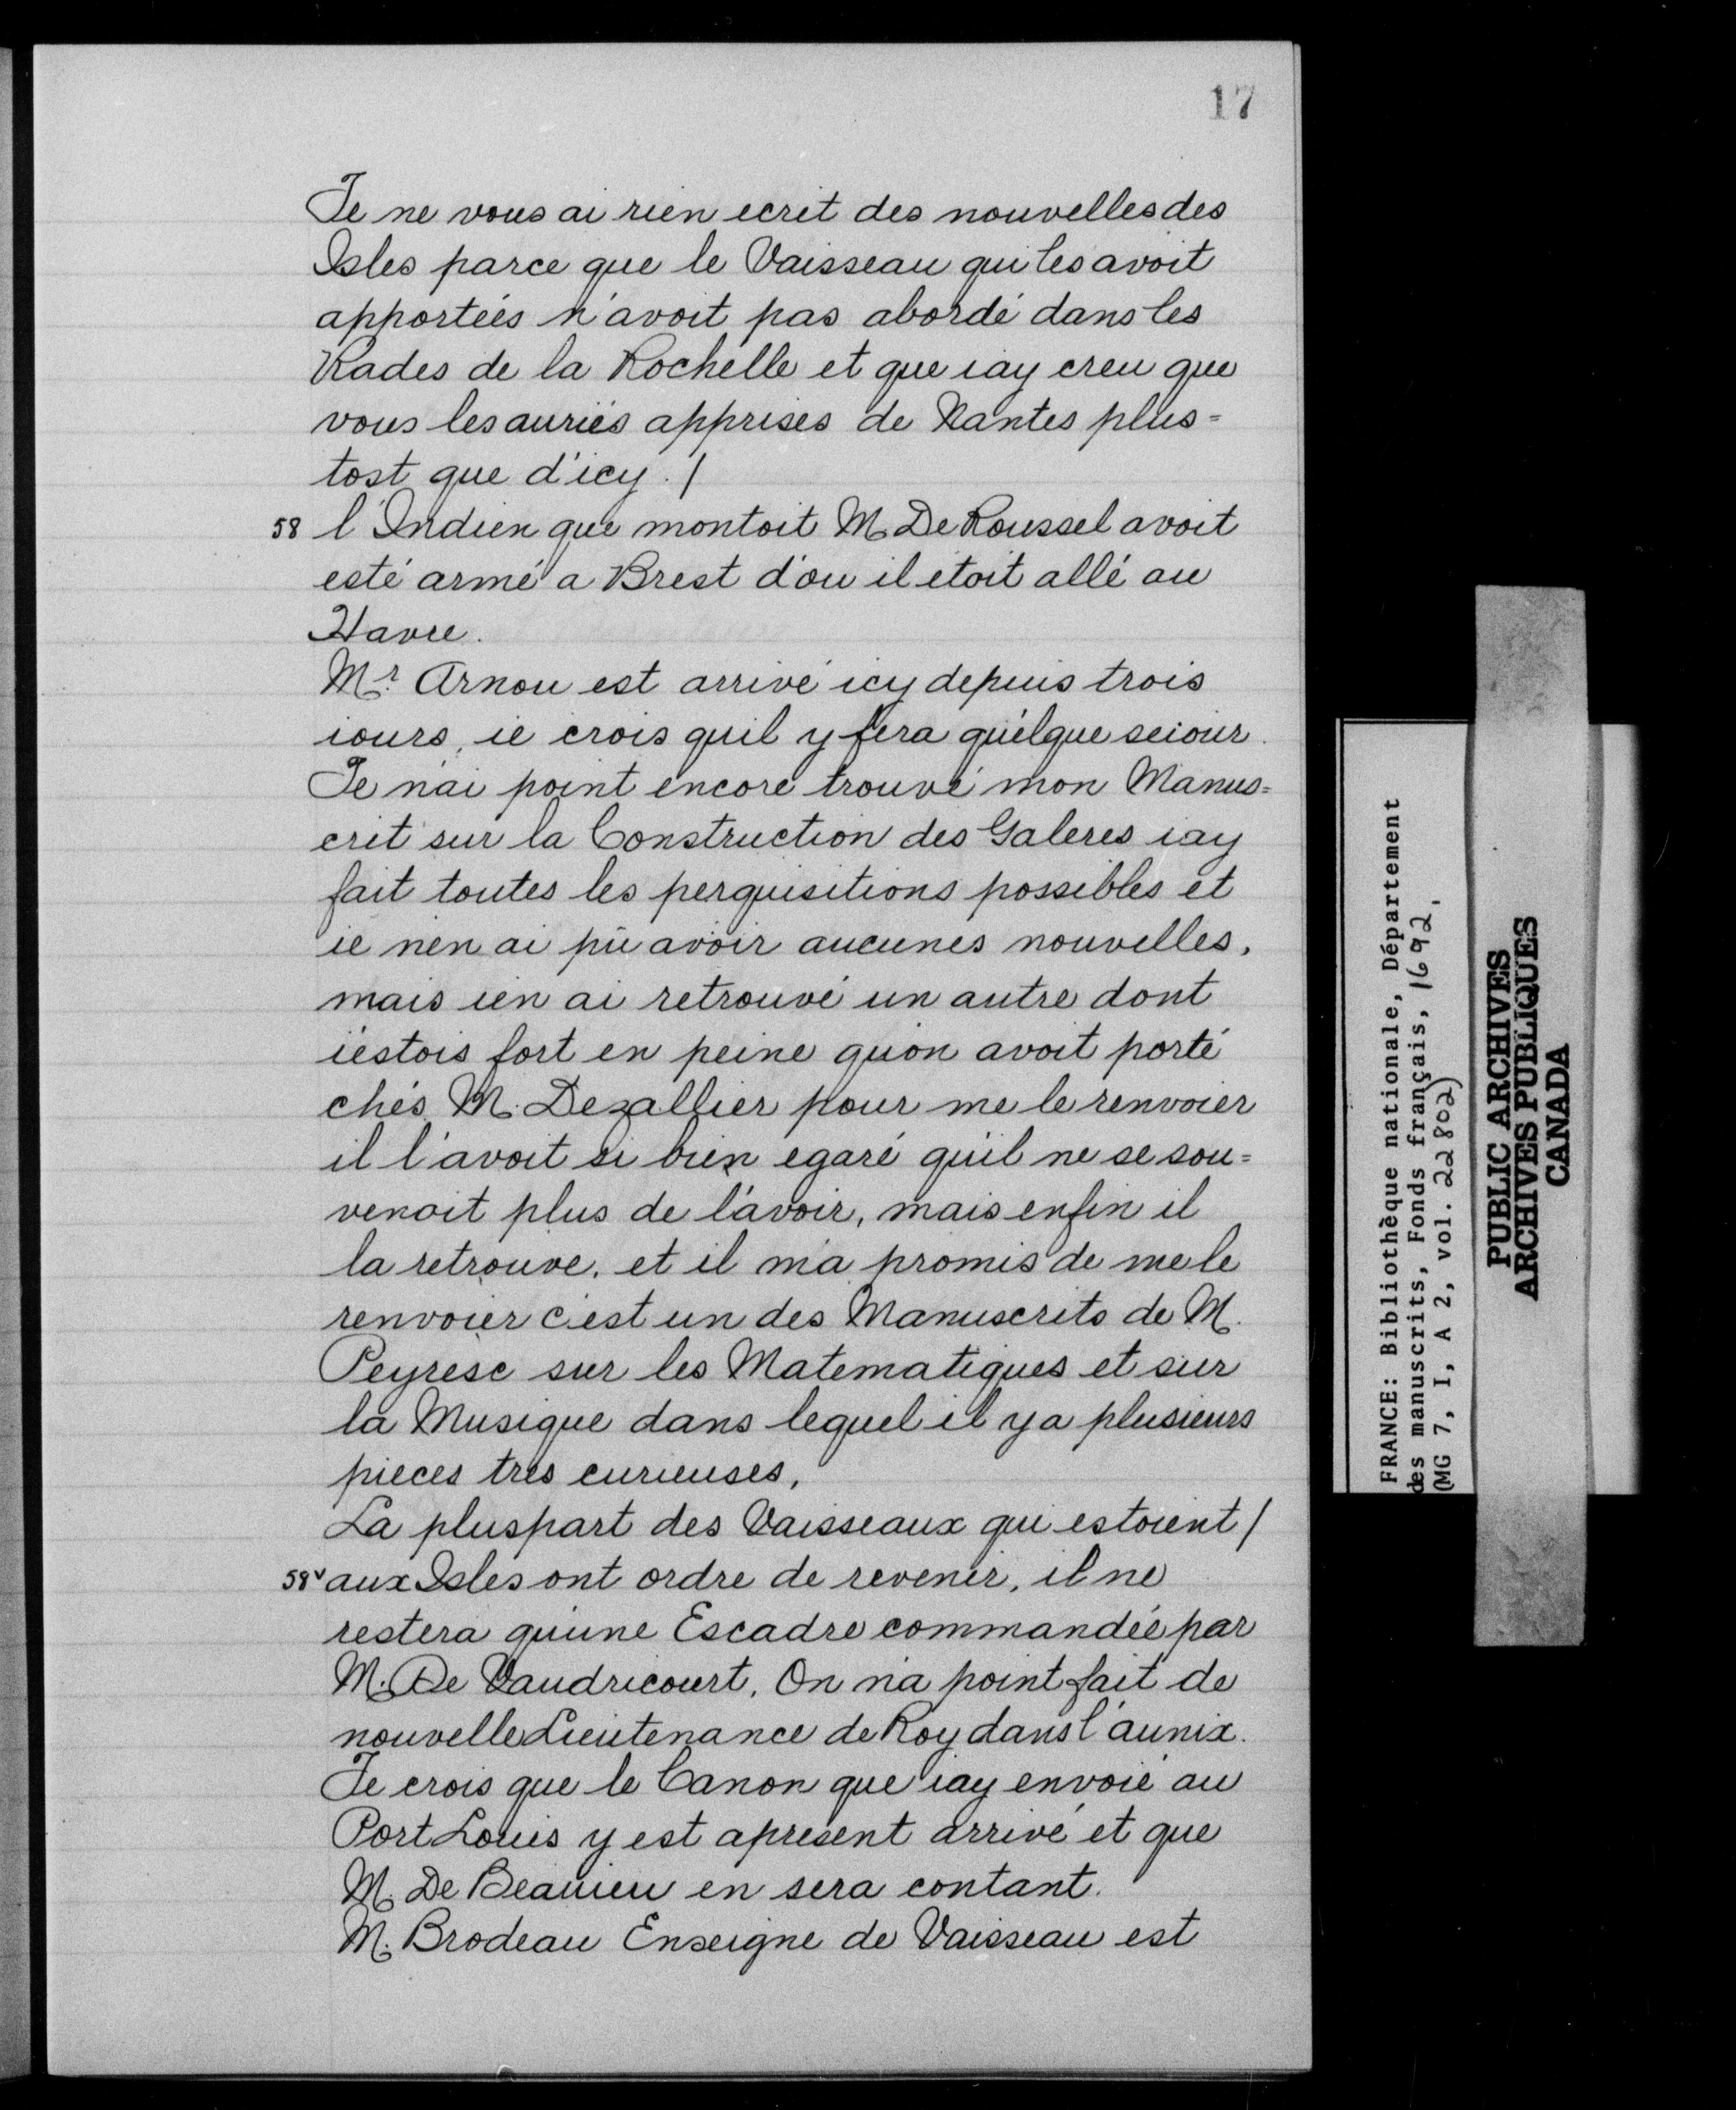 17
Je ne vous ai rien ecrit des nouvelles des
Isles parce que le Vaisseau qui les avoit
apportées n'avoit pas abordé dans les
Rades de la Rochelle et que iay creu que
vous les auriés apprises de Nantes plus=
tost que d'icy. /
58 l'Indien que montoit M De Roussel avoit
esté armé a Brest d'ou il etoit allé au
Havre.
Mr. Arnou est arrivé icy depuis trois
iours, ie crois quil y fera quelque seiour.
Je n'ai point encore trouvé mon Manus=
crit sur la Construction des Galeres iay
fait toutes les perquisitions possibles et
ie nen ai pû avoir aucunes nouvelles,
mais ien ai retrouvé un autre dont
i'estois fort en peine qu'on avoit porté
chés M. Dezallier pour me le renvoier
il l'avoit si bien egaré qu'il ne se sou=
venoit plus de l'avoir, mais enfin il
la retrouve. et il m'a promis de me le
renvoier c'est un des Manuscrits de M.
Peyresc sur les Matematiques et sur
la Musique dans lequel il y a plusieurs
pieces tres curieuses,
La pluspart des Vaisseaux qui estoient /
58v aux Isles ont ordre de revenir, il ne
restera qu'une Escadre commandée par
M. De Vaudricourt. On n'a point fait de
nouvelle Lieutenance de Roy dans l'aunix.
Je crois que le Canon que iay envoié au
Port Louis y est apresent arrivé et que
M. De Beauieu en sera contant.
M. Brodeau Enseigne de Vaisseau est
FRANCE: Bibliothèque nationale, Département
des manuscrits, Fonds français, 1692,
(MG 7, I, A 2, vol. 22802)
PUBLIC ARCHIVES
ARCHIVES PUBLIQUES
CANADA